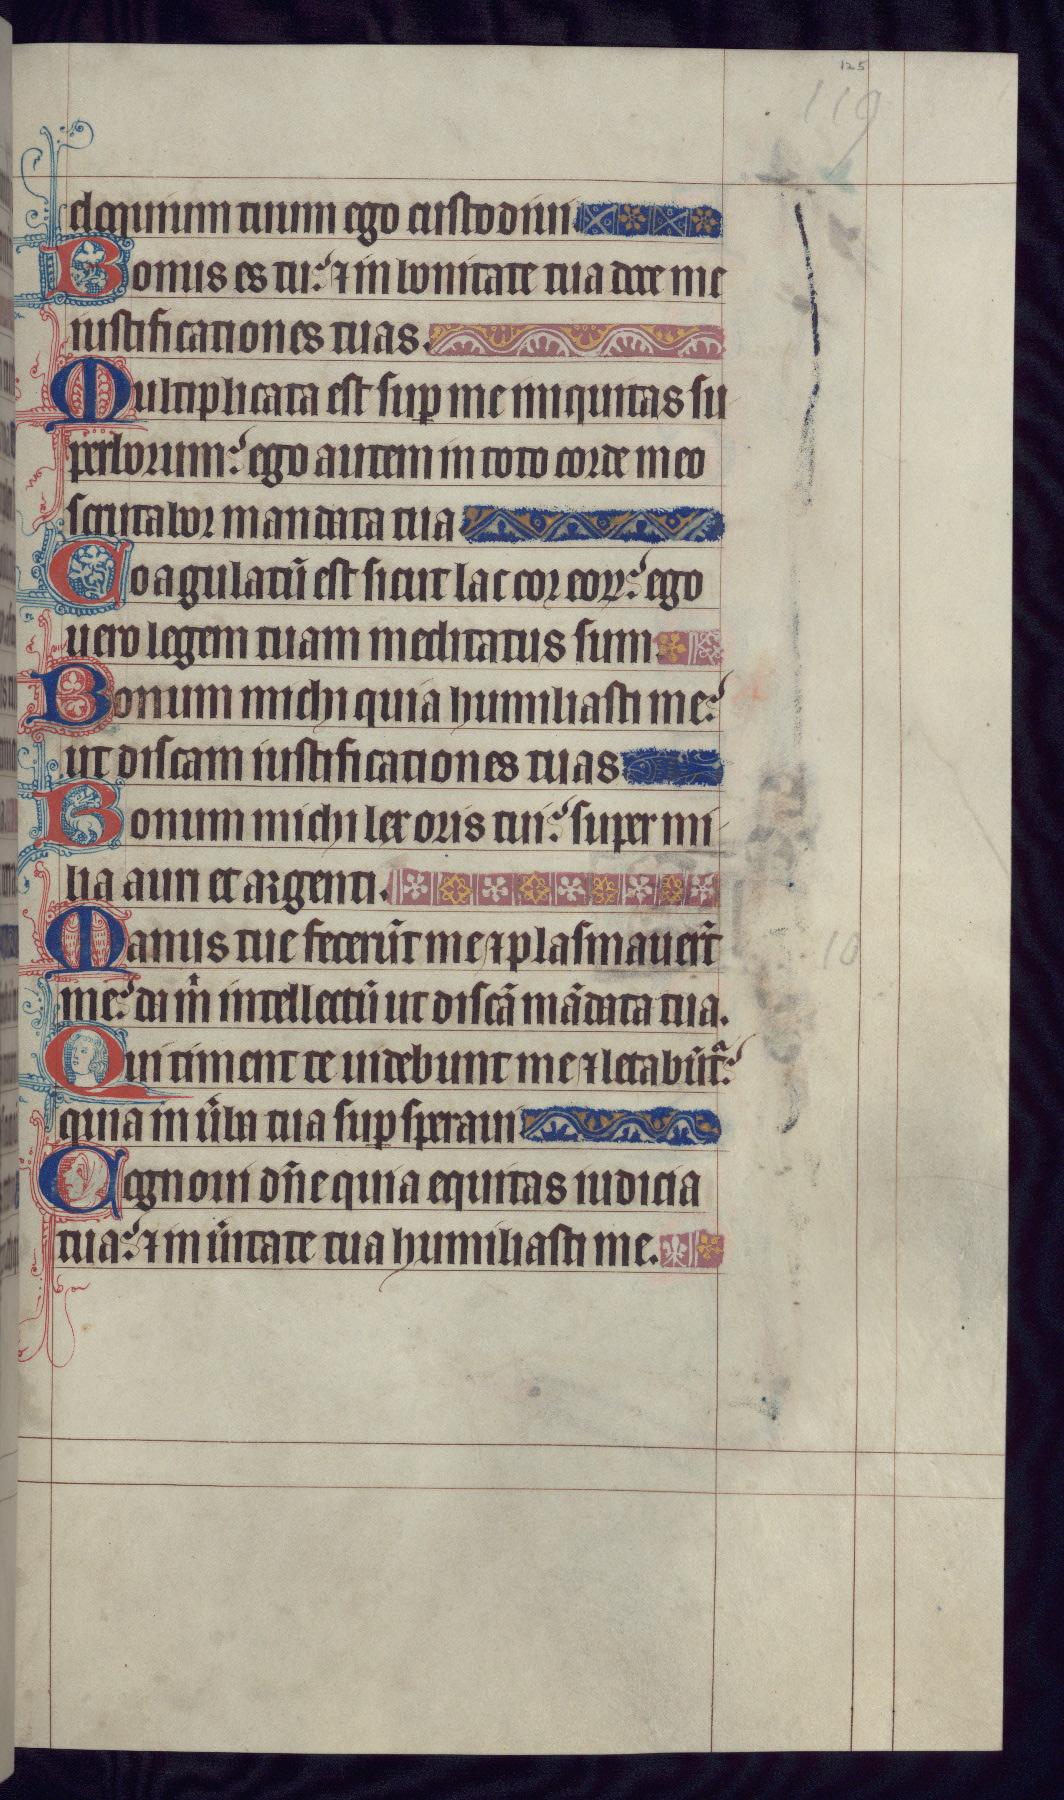 125
119
eloquium tuum ego custodiui
Bonus es tu: ⁊ in bonitate tua doce me
iustificationes tuas.
Multiplicata est sup me iniquitas su
perborum: ego autem in toto corde meo
scrutabor mandata tua
Coagulatū est sicut lac cor eoꝝ: ego
uero legem tuam meditatus sum
Bonum michi quia humiliasti me:
ut discam iustificationes tuas
Bonum michi lex oris tui: super mi
lia auri et argenti.
Manus tue fecerūt me ⁊ plasmauerūt
me: da m̃ intellectū ut discā mādata tua.
Qui timent te uidebunt me ⁊ letabūtᵃ:
quia in ũba tua sup speraui
Cognoui dñe quia equitas iudicia
tua: ⁊ in ũitate tua humiliasti me.
10